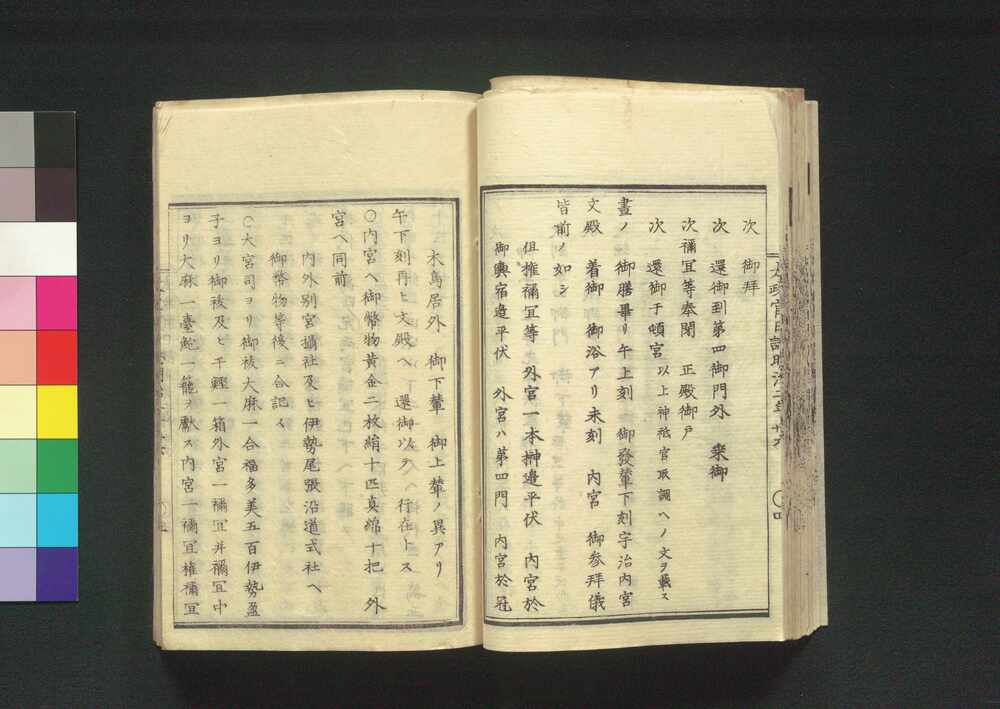 次　御拜
次　還御到第四御門外　乘御
次　禰冝等奉閇　正殿御戸
次　還御于頓宮 以上神祗官取調ヘノ文ヲ載ス
晝ノ　御膳畢リ午上刻　御發輦下刻宇治内宮
文殿　着御　御浴アリ未刻　内宮　御参拜儀
皆前ノ如シ
但権禰冝等　外宮一本榊邉平伏　内宮於
御輿宿邉平伏　外宮ハ第四門　内宮於冠
木鳥居外　御下輦　御上輦ノ異アリ
午下刻再ヒ文殿ヘ　還御以テ　行在トス
〇内宮ヘ御幣物黄金二枚絹十匹真綿十把　外
宮ヘ同前
内外別宮攝社及ヒ伊勢尾張沿道式社ヘ
御幣物等後ニ合記ス
〇大宮司ヨリ御祓大麻一合福多美五百伊勢盈
子ヨリ御祓及ヒ干鰹一箱外宮一禰冝并禰冝中
ヨリ大麻一臺鮑一籠ヲ獻ス内宮一禰冝権禰冝